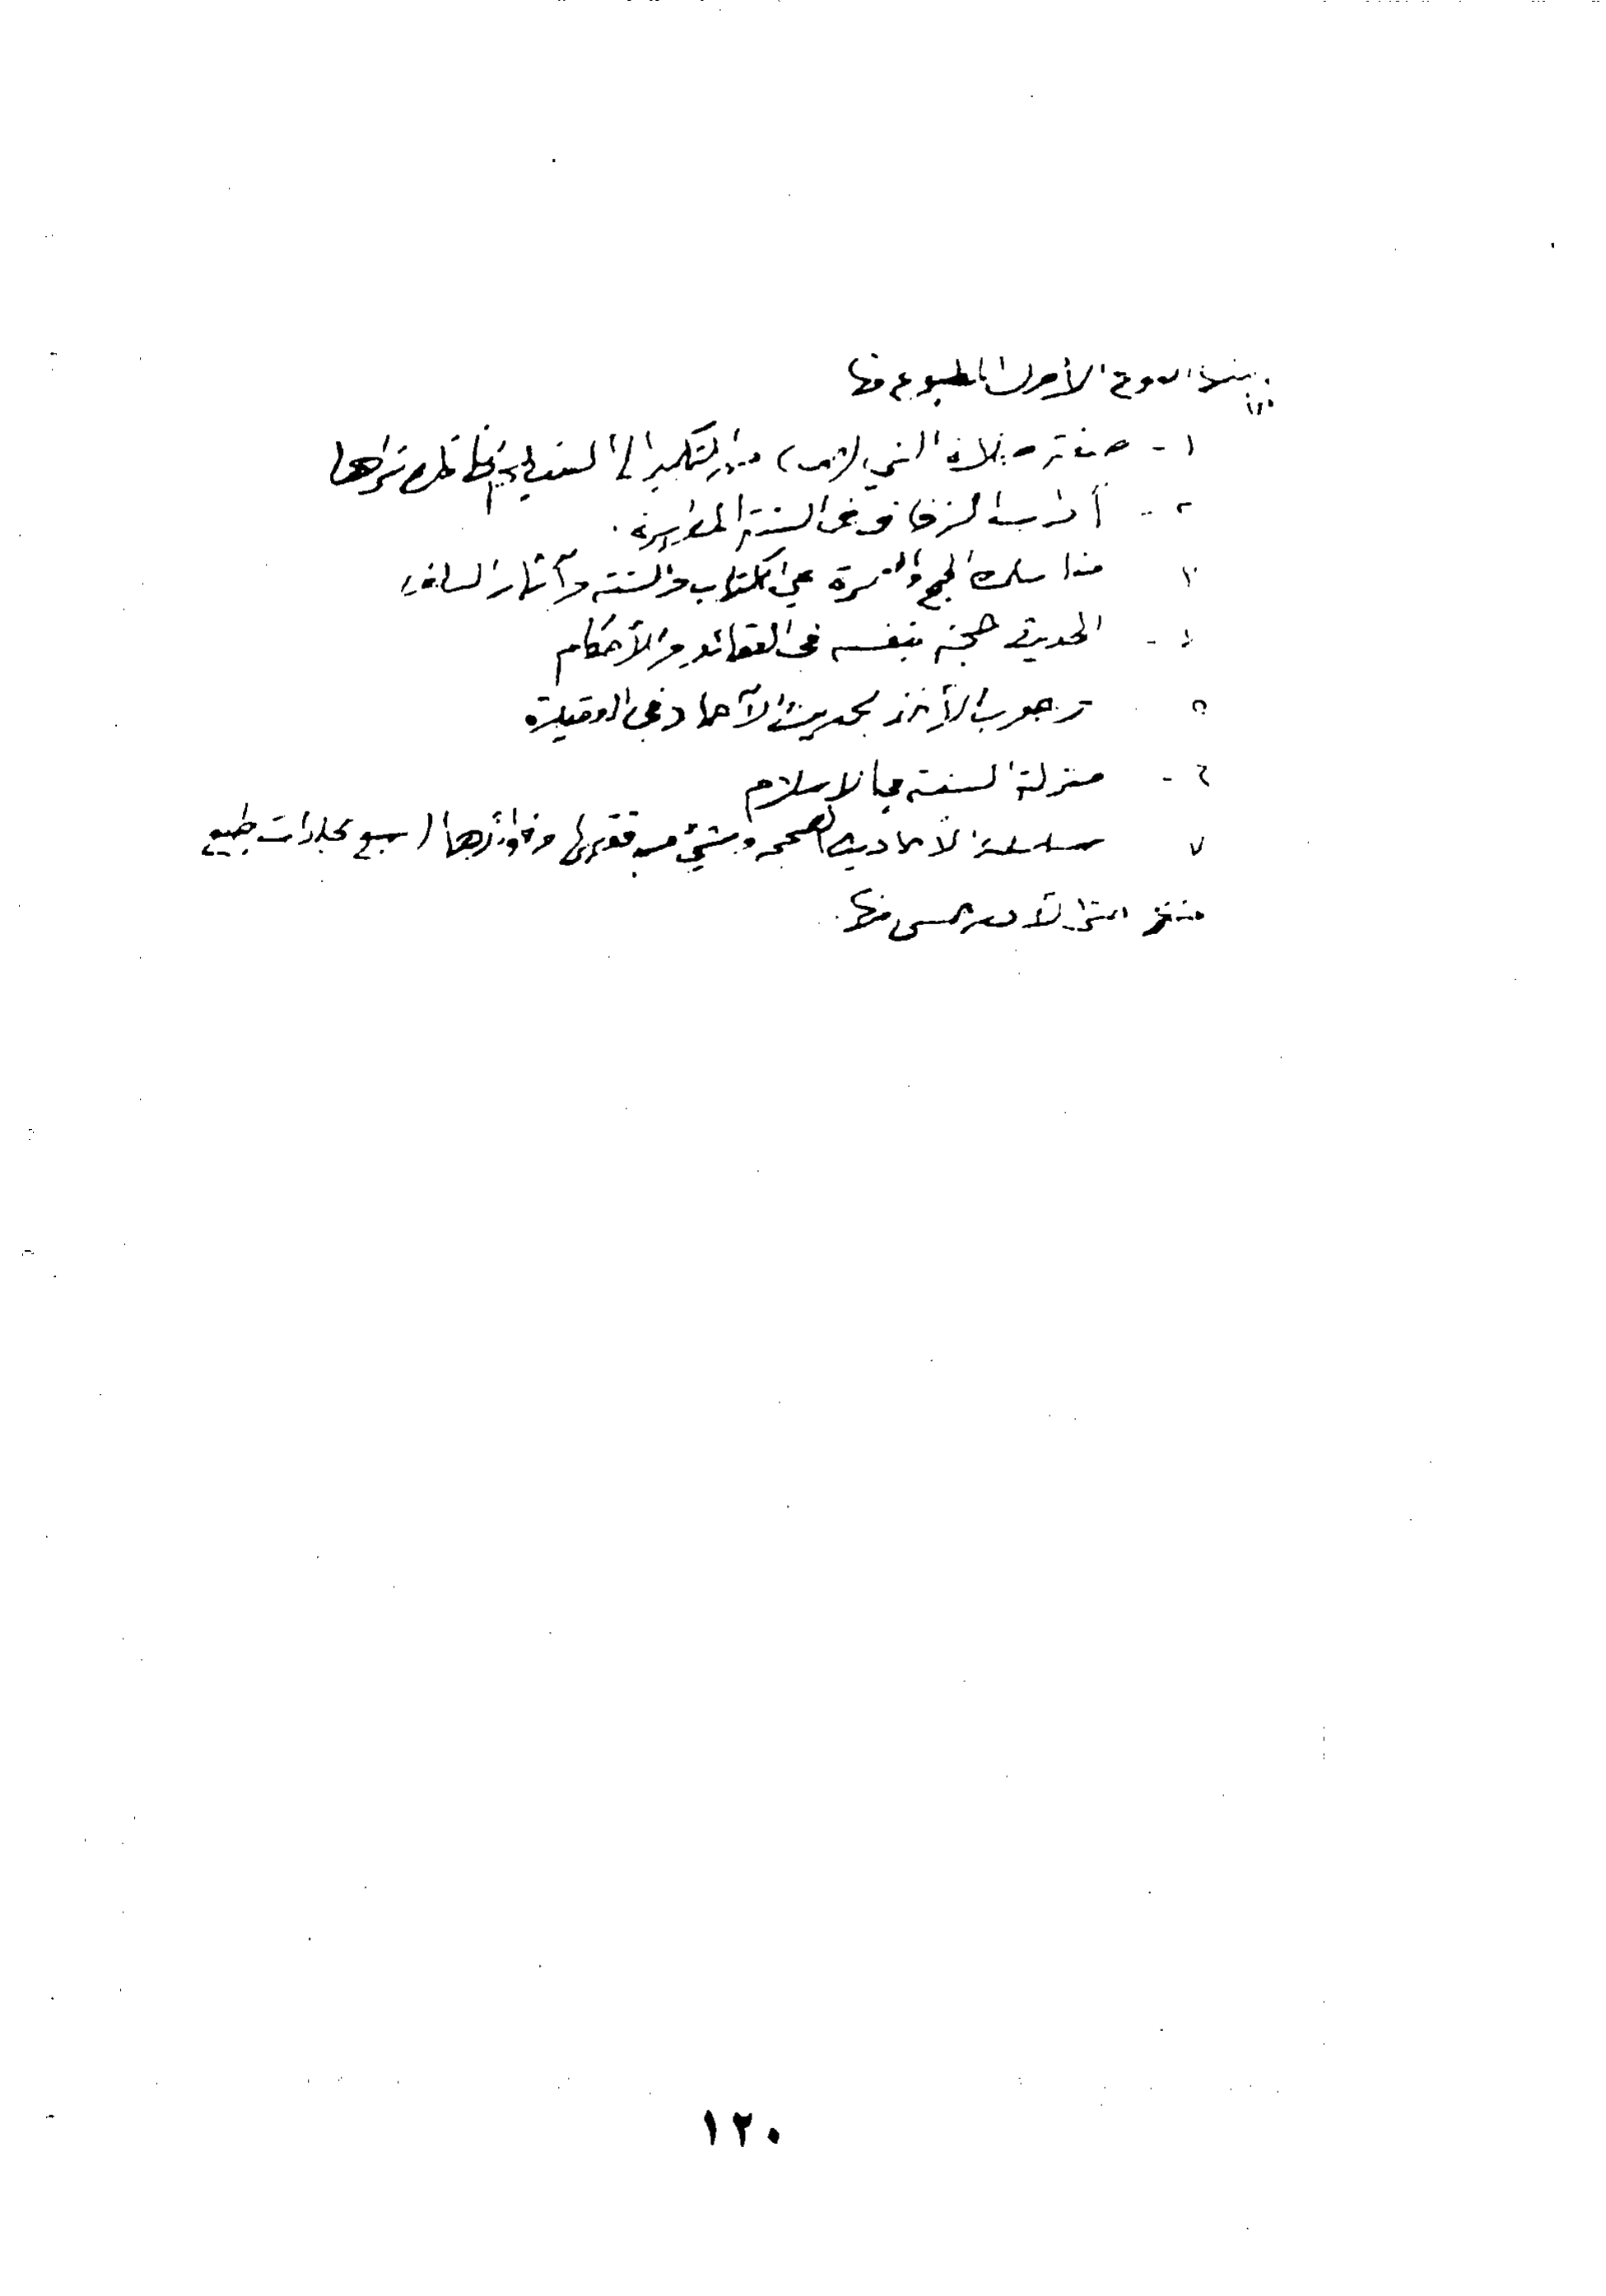 الأول المطبوع منها
١ - صفة صلاة النبي (ص) من التكبير إلى التسليم كأنك تراها
٢ - آداب الزفاف في السنة المطهرة.
٣ مناسك الحج والعمرة في الكتاب والسنة وآثار السلف
٤ - الحديث حجة بنفسه في العقائد والأحكام
٥ وجوب الأخذ بحديث الآحاد في العقيدة
٦ - منزلة السنة في الاسلام
٧ سلسلة الأحاديث الصحيحة وشيء من فقهها وفوائدها (سبع مجلدات طبع
منها.
١٢٠